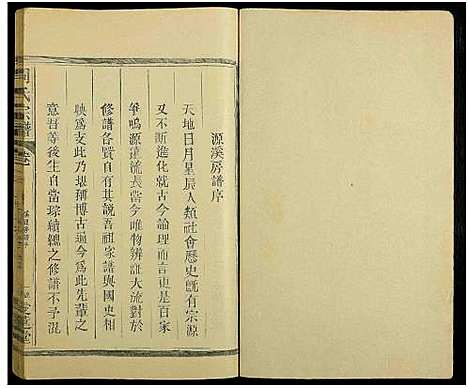 源溪房譜序
天地日月星辰人類社會歷史既有宗源
又不斷進化就古今論理而言更是百家
爭鳴源遠流長當今唯物辨證大流對於
修譜各賢自有其說吾祖家譜與國史相
映為支此乃堪稱博古遍今為此先輩之
意吾等後生自當琮續總之修譜不予混
氏宗譜